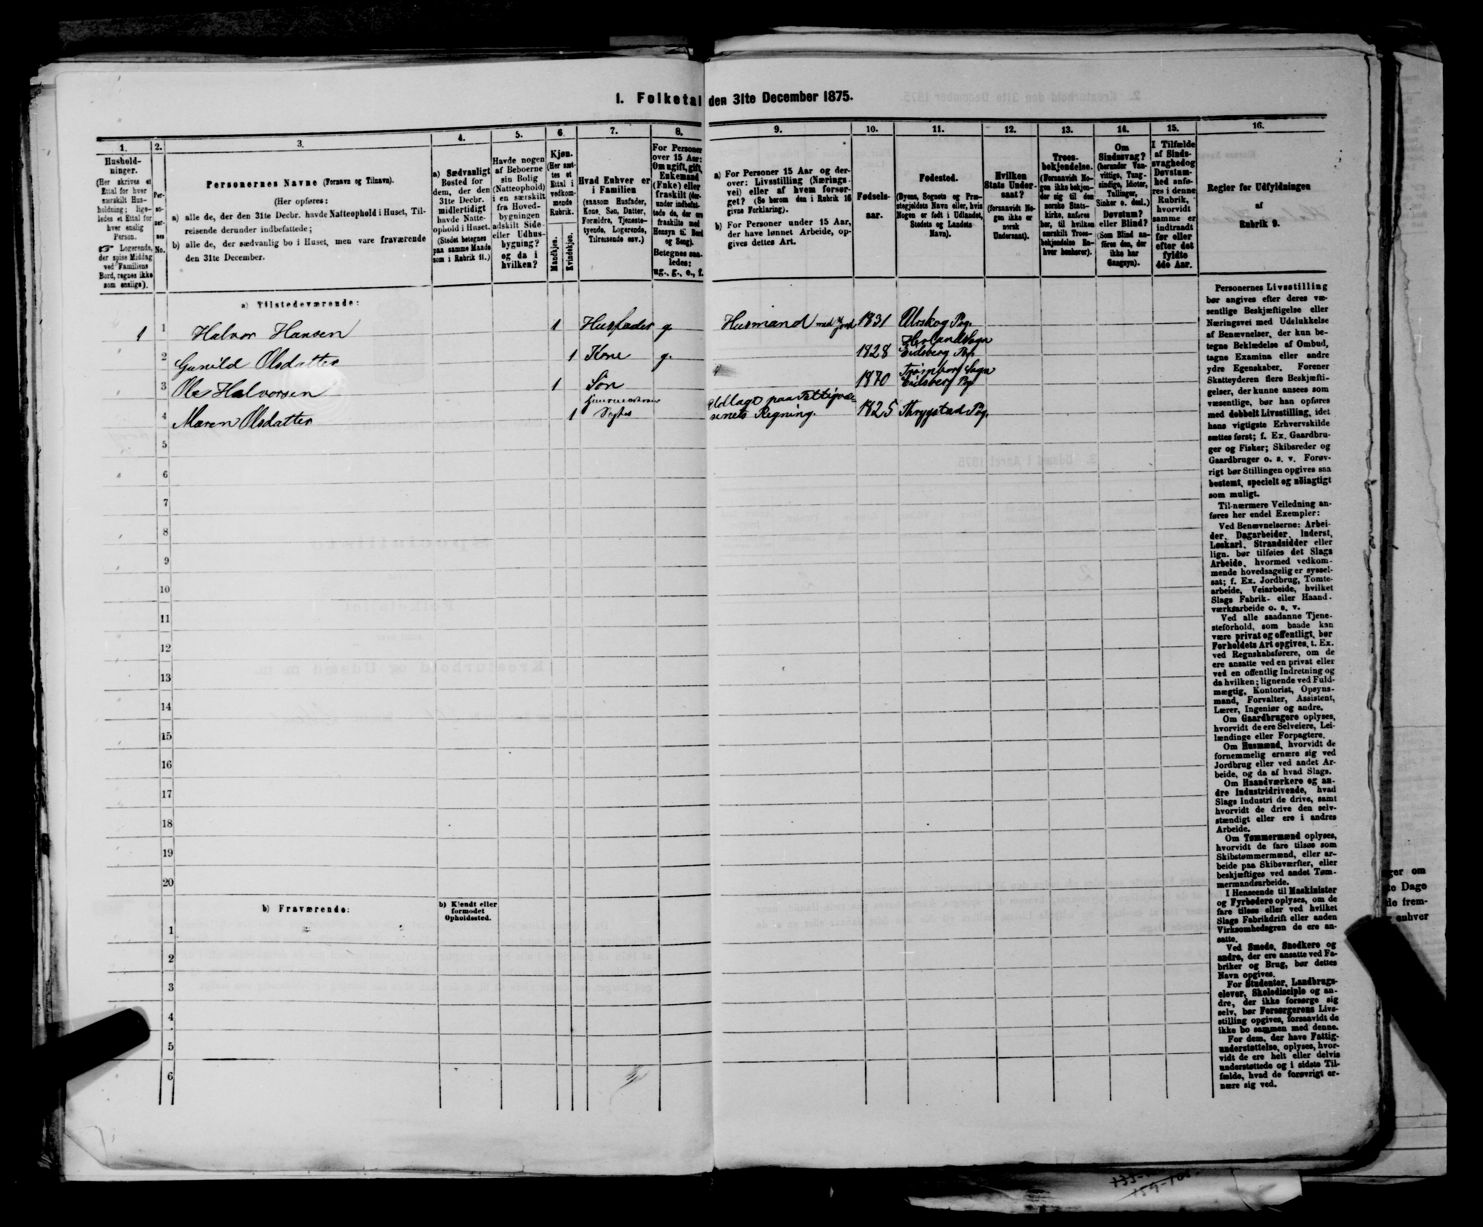 1. Folketal den 31te December 1875.
1.
Hushold-
ninger.
(Her skrives et
Ettal for hver
særskilt Hus-
holdning; lige-
ledes et Ettal for
hver enslig
Person.
Logerende,
der spise Middag
ved Familiens
Bord, regnes ikke
som enslige).
2.
Per-
so-
ner-
No.
3.
Personernes Navne (Fornavn og Tilnavn).
(Her opføres:
a) alle de, der den 31te Decbr. havde Natteophold i Huset, Til-
reisende derunder indbefattede;
b) alle de, der sædvanlig bo i Huset, men vare fraværende
den 31te December.
4.
a) Sædvanligt
Bosted for
dem, der den
31te Decbr.
midlertidigt
havde Natte-
ophold i Huset.
(Stedet betegnes
paa samme Maade
som i Rubrik 11.)
5.
Havde nogen
af Beboerne
sin Bolig
(Natteophold)
i en særskilt
fra Hoved-
bygningen
adskilt Side-
eller Udhus-
bygning?
og da i
hvilken?
6.
Kjøn.
(Her sæt-
tes et
Ettal i
vedkom-
mende
Rubrik.
Mandkjøn.
Kvindekjøn.
7.
Hvad Enhver er
i Familien
(saasom Husfader,
Kone, Søn, Datter,
Forældre, Tjeneste-
tyende, Logerende,
Tilreisende osv.)
8.
For Personer
over 15 Aar:
Om ugift, gift,
Enkemand
(Enke) eller
fraskilt (der-
under indbefat-
tede de, der ere
fraskilte med
Hensyn til Bord
og Seng).
Betegnes saa-
ledes:
ug., g., e., f.
9.
a) For Personer 15 Aar og der-
over: Livsstilling (Nærings-
vei) eller af hvem forsør-
get? (Se herom den i Rubrik 16
givne Forklaring).
b) For Personer under 15 Aar,
der have lønnet Arbeide, op-
gives dettes Art.
10.
Fødsels-
aar.
11.
Fødested.
(Byens, Sognets og Præ-
stegjeldets Navn eller, hvis
Nogen er født i Udlandet,
Stedets og Landets
Navn).
12.
Hvilken
Stats Under-
saat?
(forsaavidt No-
gen ikke er
norsk
Undersaat).
13.
Troes-
bekjendelse.
(Forsaavidt No-
gen ikke bekjen-
der sig til den
norske Stats-
kirke, anføres
her, til hvilken
særskilt Troes-
bekjendelse En-
hver henhører).
14.
Om
Sindssvag?
(herunder Van-
vittige, Tung-
sindige, Idioter,
Tullinger,
Sinker o. desl.)
Døvstum?
eller Blind?
(Som Blind an-
føres den, der
ikke har
Gangsyn).
15.
I Tilfælde
af Sinds-
svaghed og
Døvstum-
hed anfø-
res i denne
Rubrik,
hvorvidt
samme er
indtraadt
før eller
efter det
fyldte
4de Aar.
16.
Regler for Udfyldningen
af
Rubrik 9.
a) Tilstedeværende:
1 1 Halvor Hansen 1 Husfader g. Husmand med Jord 1831 Urskog Pg.
2 Gunild Olsdatter 1 Kone g. 1828 Herlands Sogn
Eidsberg Pg.
3 Ole Halvorsen 1 Søn 1870 Trømborg Sogn
Eidsberg Pg.
4 Maren Olsdatter 1 1825 Thrygstad Pg.
Regning.
5
6
7
8
9
10
11
12
13
14
15
16
17
18
19
20
b) Fraværende:
b) Kjendt eller
formodet
Opholdssted.
1
2
3
4
5
6
Personernes Livsstilling
bør angives efter deres væ-
sentlige Beskjæftigelse eller
Næringsvei med Udelukkelse
af Benævnelser, der kun be-
tegne Beklædelse af Ombud,
tagne Examina eller andre
ydre Egenskaber. Forener
Skatteyderen flere Beskjæfti-
gelser, der kunne ansees som
væsentlige, bør han opføres
med dobbelt Livsstilling, idet
hans vigtigste Erhvervskilde
sættes først; f. Ex. Gaardbru-
ger og Fisker; Skibsreder og
Gaardbruger o. s. v. Forøv-
rigt bør Stillingen opgives saa
bestemt, specielt og nöiagtigt
som muligt.
Til nærmere Veiledning an-
føres her endel Exempler:
Ved Benævnelserne: Arbei-
der, Dagarbeider, Inderst,
Løskarl, Strandsidder eller
lign. bør tilføies det Slags
Arbeide, hvormed vedkom-
mende hovedsagelig er syssel-
sat; f. Ex. Jordbrug, Tomte-
arbeide, Veiarbeide, hvilket
Slags Fabrik- eller Haand-
værksarbeide o. s. v.
Ved alle saadanne Tjene-
steforhold, som baade kan
være privat og offentligt, bør
Forholdets Art opgives, t. Ex.
ved Regnskabsførere, om de
ere ansatte ved en privat eller
ved en offentlig Indretning og
da hvilken; lignende ved Fuld-
mægtig, Kontorist, Opsyns-
mand, Forvalter, Assistent,
Lærer, Ingeniør og andre.
Om Gaardbrugere oplyses,
hvorvidt de ere Selveiere, Lei-
lændinge eller Forpagtere.
Om Husmænd, hvorvidt de
fornemmelig ernære sig ved
Jordbrug eller ved andet Ar-
beide, og da af hvad Slags.
Om Haandværkere og an-
dre Industridrivende, hvad
Slags Industri de drive, samt
hvorvidt de drive den selv-
stændigt eller ere i andres
Arbeide.
Om Tømmermænd oplyses,
hvorvidt de fare tilsøs som
Skibstømmermænd, eller ar-
beide paa Skibsværfter, eller
beskjæftiges ved andet Tøm-
mermandsarbeide.
I Henseende til Maskinister
og Fyrbødere oplyses, om de
fare tilsøs eller ved hvilket
Slags Fabrikdrift eller anden
Virksomhedsgren de ere an-
satte.
Ved Smede, Snedkere og
andre, der ere ansatte ved Fa-
briker og Brug, bør dettes
Navn opgives.
For Studenter, Landbrugs-
elever, Skoledisciple og an-
dre, der ikke forsørge sig
selv, bør Forsørgerens Livs-
stilling opgives, forsaavidt de
ikke bo sammen med denne.
For dem, der have Fattig-
understøttelse, oplyses, hvor-
vidt de ere helt eller delvis
understøttede og i sidste Til-
fælde, hvad de forøvrigt er-
nære sig ved.